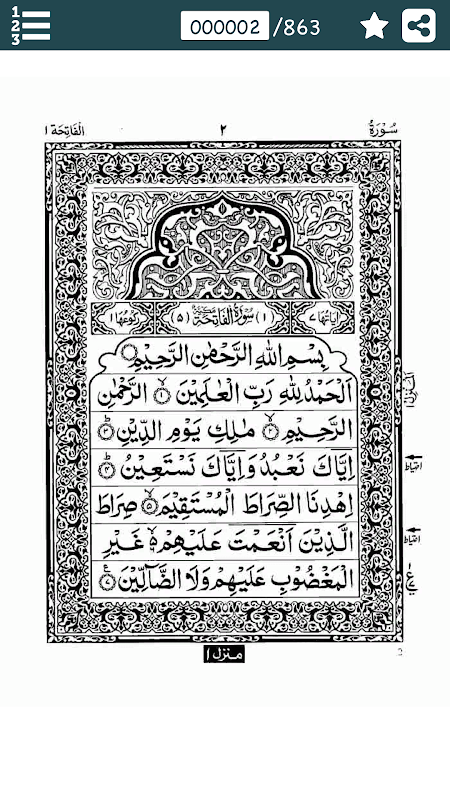 1
2
3
000002 /863
سُوْرَةُ ٢ اَلْفَاتِحَة ١
اٰيَاتُهَا ٧ (١) سُوْرَةُ الْفَاتِحَةِ (٥) رُكُوْعُهَا ١
بِسْمِ اللّٰهِ الرَّحْمٰنِ الرَّحِيْمِ
اَلْحَمْدُ لِلّٰهِ رَبِّ الْعٰلَمِيْنَ ۙ﴿١﴾ الرَّحْمٰنِ
الرَّحِيْمِ ۙ﴿٢﴾ مٰلِكِ يَوْمِ الدِّيْنِ ؕ﴿٣﴾
اِيَّاكَ نَعْبُدُ وَاِيَّاكَ نَسْتَعِيْنُ ؕ﴿٤﴾
اِهْدِنَا الصِّرَاطَ الْمُسْتَقِيْمَ ۙ﴿٥﴾ صِرَاطَ
الَّذِيْنَ اَنْعَمْتَ عَلَيْهِمْ ۙ۬﴿٦﴾ غَيْرِ
الْمَغْضُوْبِ عَلَيْهِمْ وَلَا الضَّآلِّيْنَ ﴿٧﴾
احتیاط
احتیاط
منزل ١
2